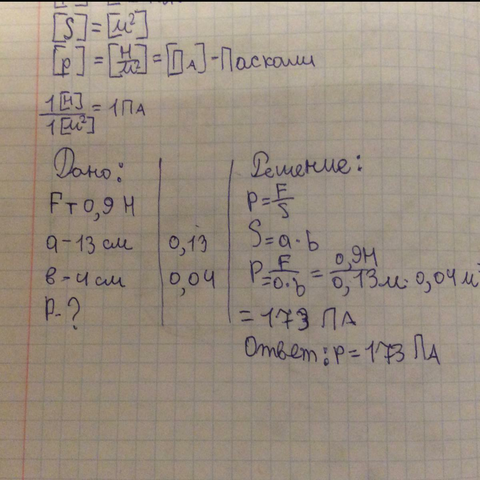 [S] = [м²]
[p] = [Н/м²] = [ПА] - Паскали
1[Н]/1[м²] = 1 ПА
Дано:
Fт 0,9 Н
a - 13 см 0,13
в - 4 см 0,04
P - ?
Решение:
P = F/S
S = a · b
P = F/a·b = 0,9Н/0,13м · 0,04м =
= 173 ПА
Ответ: P = 173 ПА